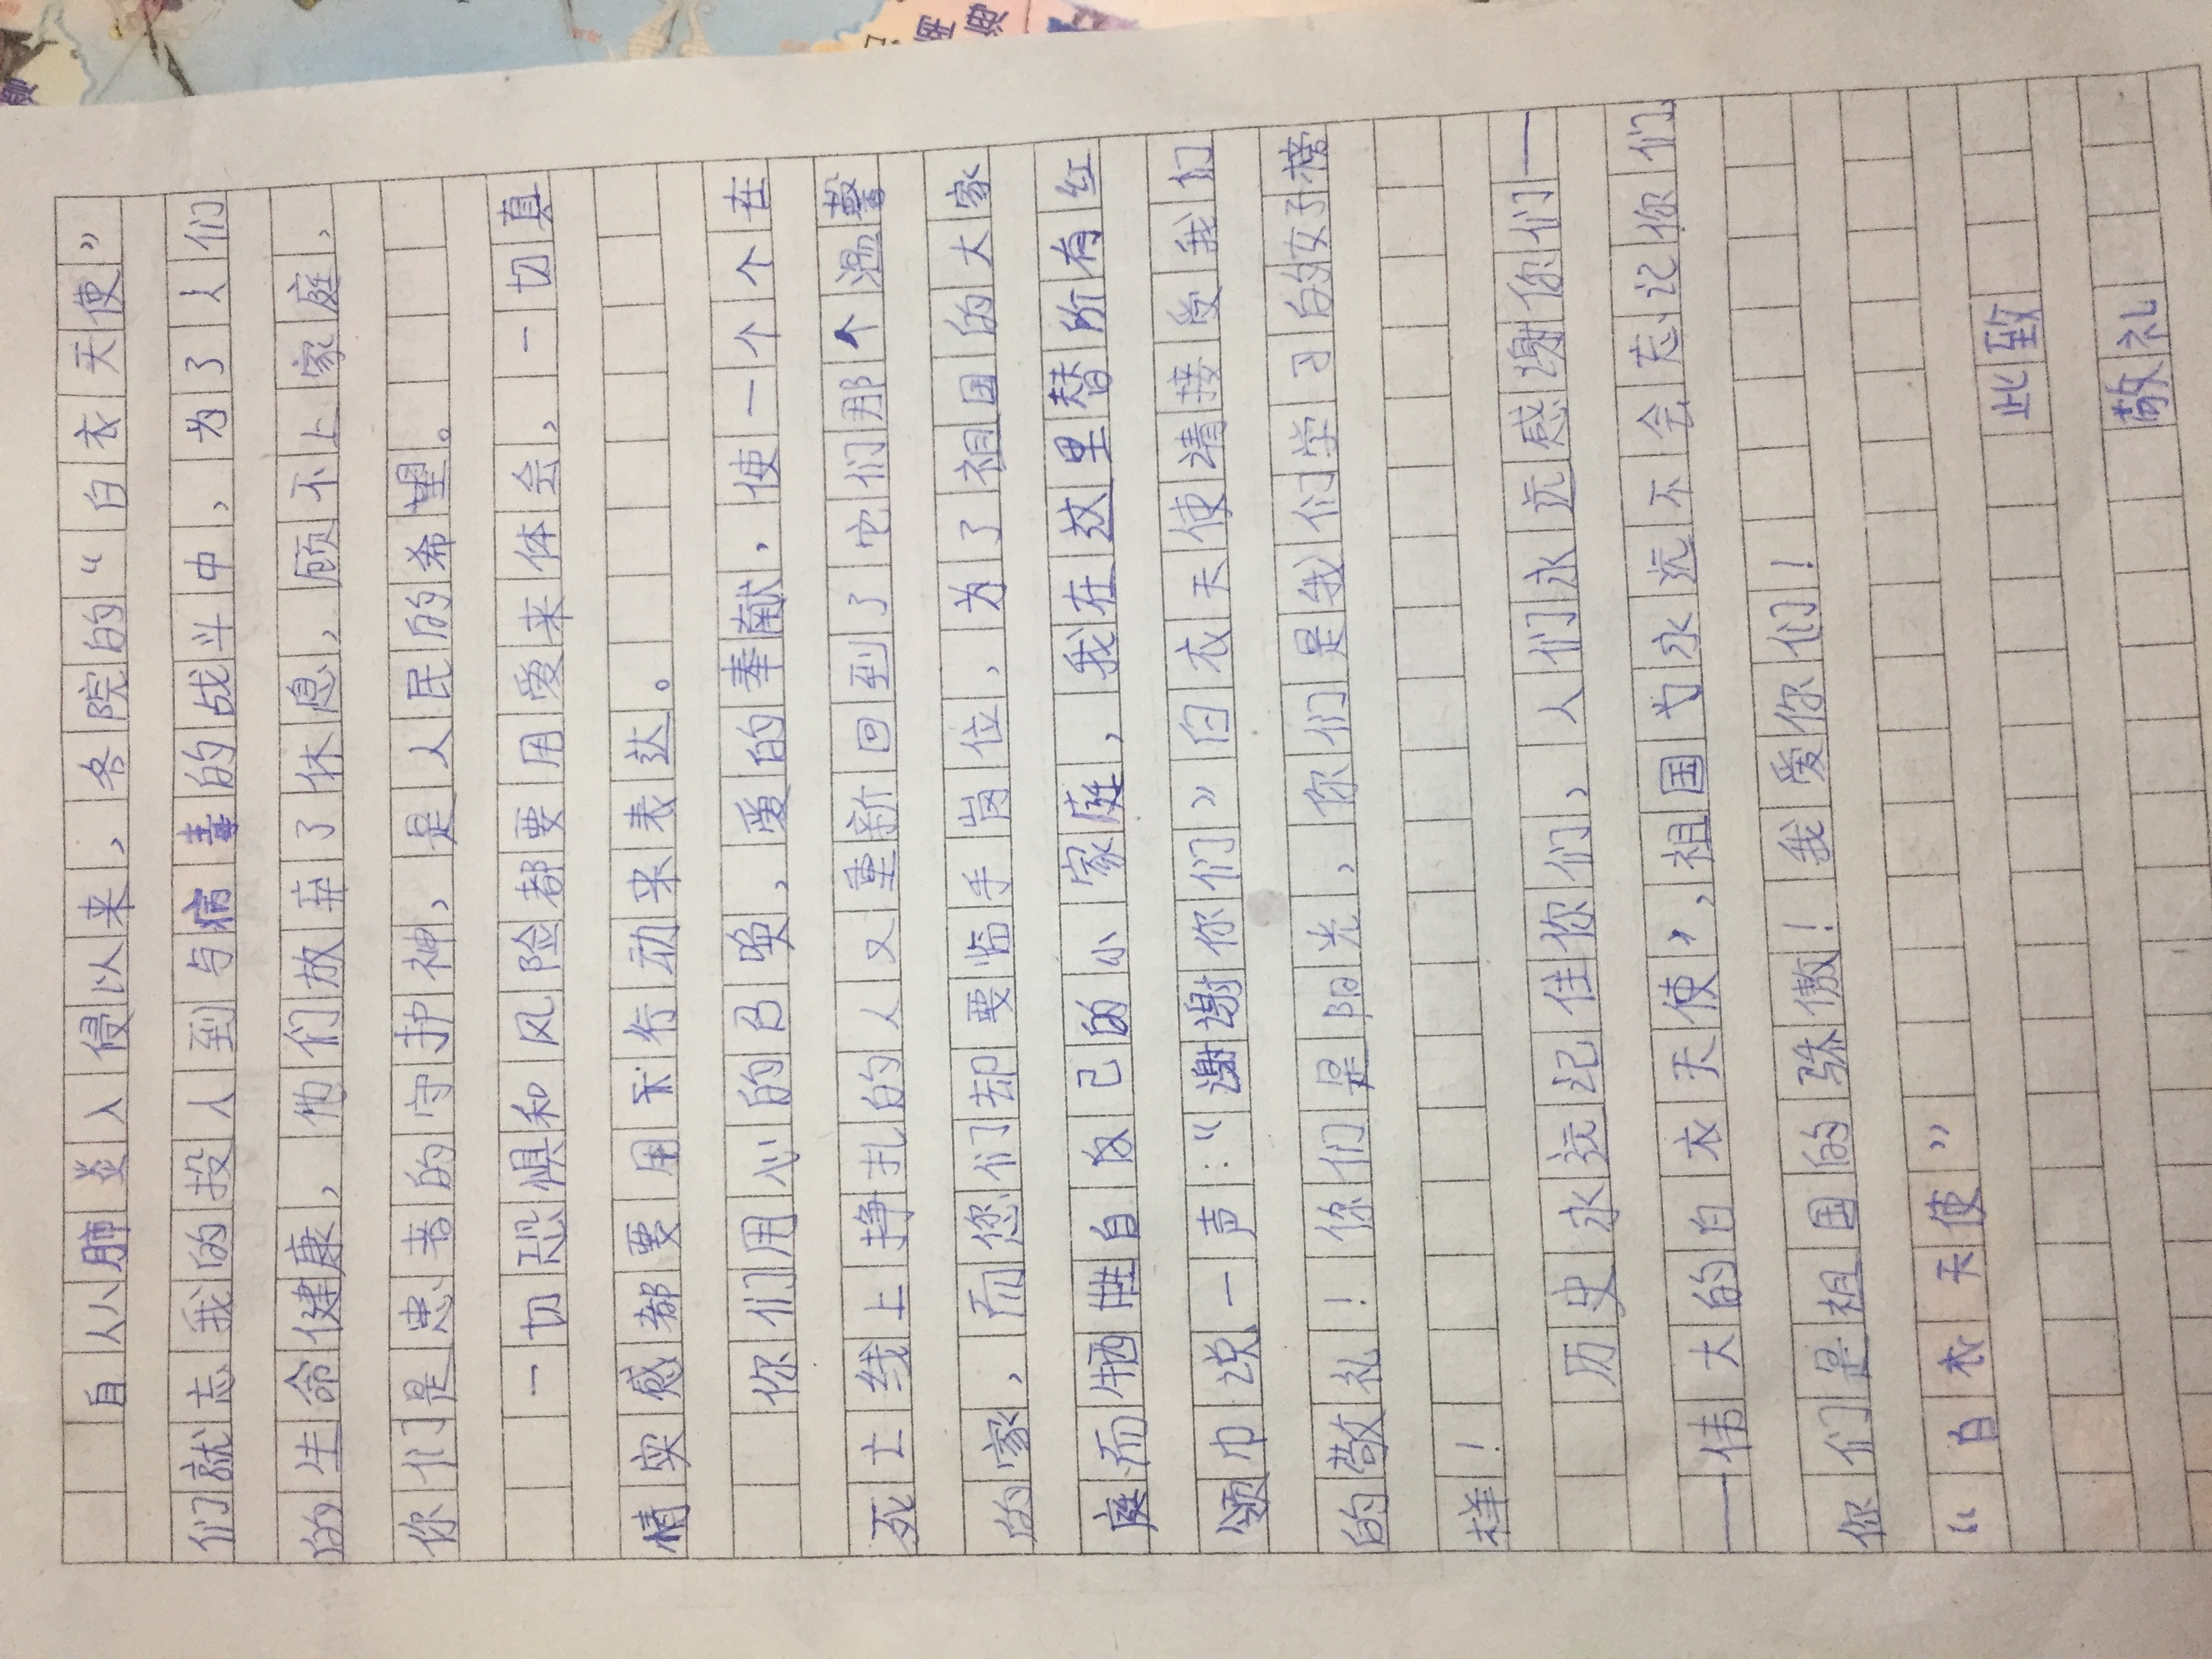 自从肺炎入侵以来，各院的“白衣天使”
们就志我的投人到与病毒的战斗中，为了人们
的生命健康，他们放弃了休息，顾不上家庭，
你们是患者的守护神，是人民的希望。
一切恐惧和风险都要用爱来体会，一切真
情实感都要用行动来表达。
你们用心的召唤，爱的奉献，使一个个在
死亡线上挣扎的人又重新回到了它们那个温馨
的家，而您们却要临手岗位，为了祖国的大家
庭而牺牲自己的小家庭，我在这里替所有红
领巾说一声：“谢谢你们”白衣天使请接受我们
的敬礼！你们是阳光，你们是我们学习的好榜
样！
历史永远记住你们，人们永远感谢你们——
——伟大的白衣天使，祖国也永远不会忘记你们，
你们是祖国的骄傲！我爱你们！
“白衣天使”
此致
敬礼